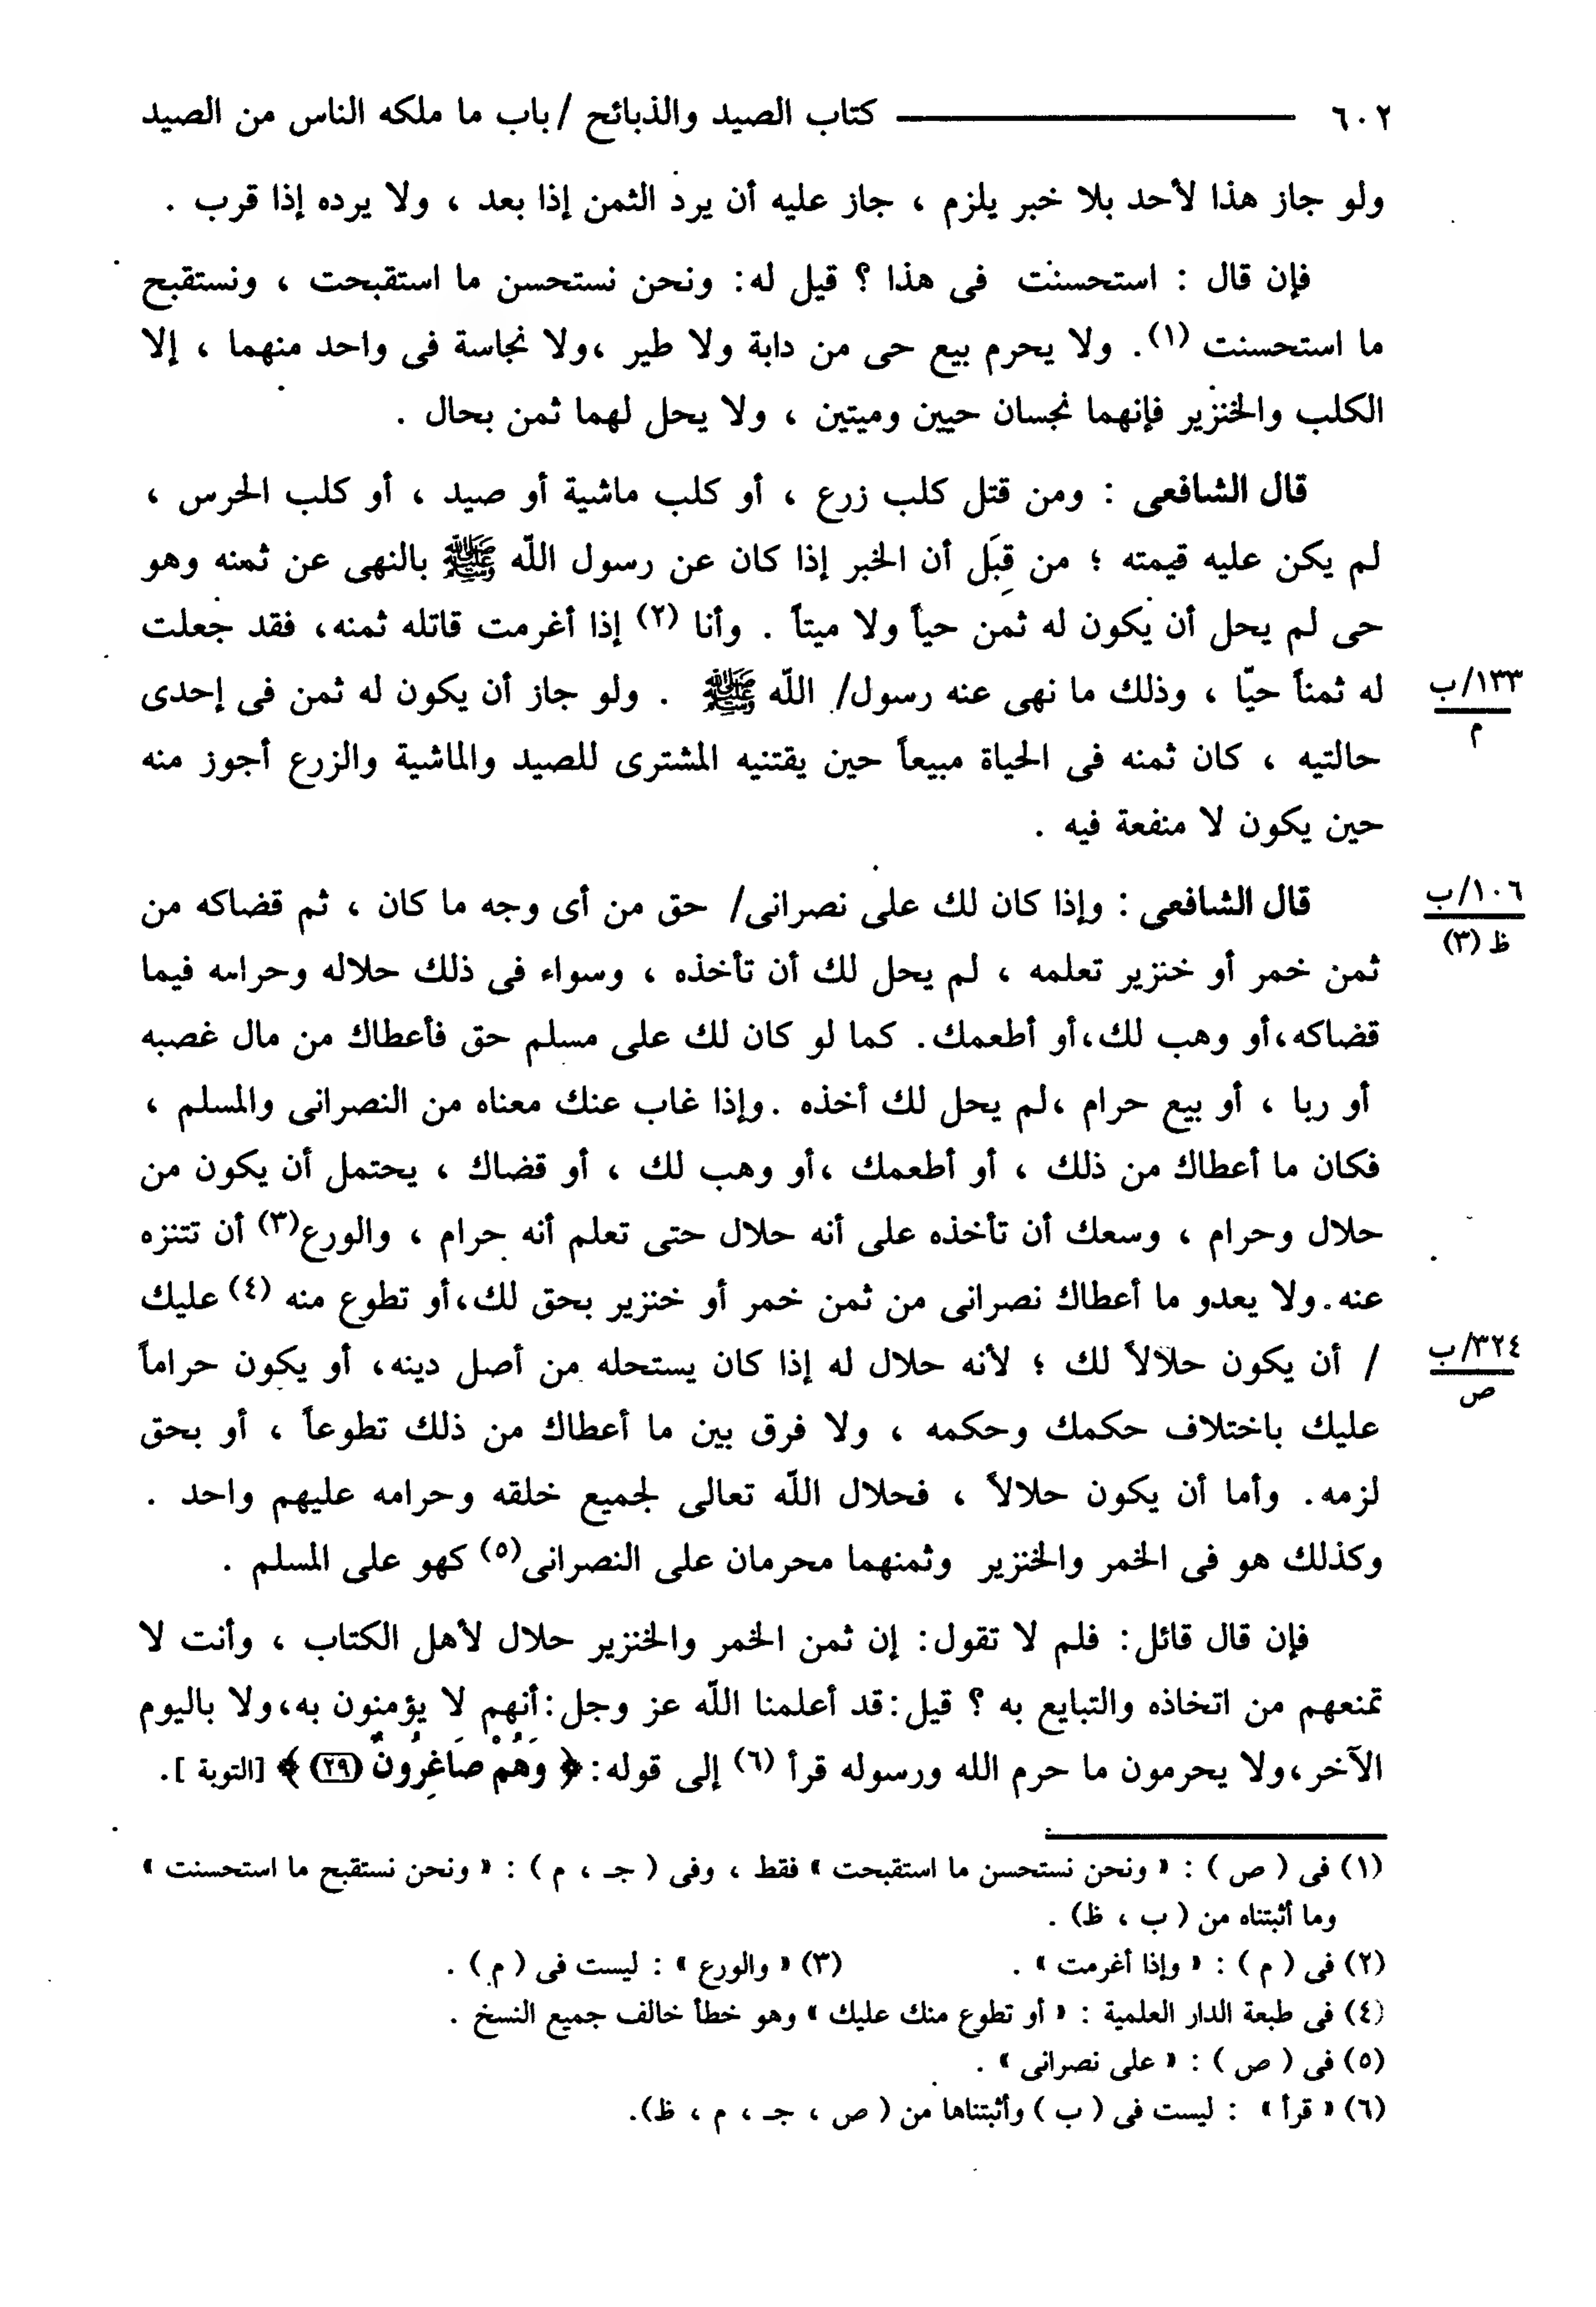 ٦٠٢ كتاب الصيد والذبائح / باب ما ملكه الناس من الصيد
ولو جاز هذا لأحد بلا خبر يلزم ، جاز عليه أن يرد الثمن إذا بعد ، ولا يرده إذا قرب .
فإن قال : استحسنت فى هذا ؟ قيل له: ونحن نستحسن ما استقبحت ، ونستقبح
ما استحسنت (١). ولا يحرم بيع حى من دابة ولا طير ،ولا نجاسة فى واحد منهما ، إلا
الكلب والخنزير فإنهما نجسان حيين وميتين ، ولا يحل لهما ثمن بحال .
قال الشافعى : ومن قتل كلب زرع ، أو كلب ماشية أو صيد ، أو كلب الحرس ،
لم يكن عليه قيمته ؛ من قِبَل أن الخبر إذا كان عن رسول اللّه ﷺ بالنهى عن ثمنه وهو
حى لم يحل أن يكون له ثمن حياً ولا ميتاً . وأنا (٢) إذا أغرمت قاتله ثمنه، فقد جعلت
له ثمناً حيّا ، وذلك ما نهى عنه رسول/ اللّه ﷺ . ولو جاز أن يكون له ثمن فى إحدى
١٣٣/ب
م
حالتيه ، كان ثمنه فى الحياة مبيعاً حين يقتنيه المشترى للصيد والماشية والزرع أجوز منه
حين يكون لا منفعة فيه .
قال الشافعى : وإذا كان لك على نصرانى/ حق من أى وجه ما كان ، ثم قضاكه من
١٠٦/ب
ظ (٣)
ثمن خمر أو خنزير تعلمه ، لم يحل لك أن تأخذه ، وسواء فى ذلك حلاله وحرامه فيما
قضاكه،أو وهب لك،أو أطعمك. كما لو كان لك على مسلم حق فأعطاك من مال غصبه
أو ربا ، أو بيع حرام ،لم يحل لك أخذه .وإذا غاب عنك معناه من النصرانى والمسلم ،
فكان ما أعطاك من ذلك ، أو أطعمك ،أو وهب لك ، أو قضاك ، يحتمل أن يكون من
حلال وحرام ، وسعك أن تأخذه على أنه حلال حتى تعلم أنه حرام ، والورع(٣) أن تتنزه
عنه.ولا يعدو ما أعطاك نصرانى من ثمن خمر أو خنزير بحق لك،أو تطوع منه (٤) عليك
/ أن يكون حلالاً لك ؛ لأنه حلال له إذا كان يستحله من أصل دينه، أو يكون حراماً
٣٢٤/ب
ص
عليك باختلاف حكمك وحكمه ، ولا فرق بين ما أعطاك من ذلك تطوعاً ، أو بحق
لزمه. وأما أن يكون حلالاً ، فحلال اللّه تعالى لجميع خلقه وحرامه عليهم واحد .
وكذلك هو فى الخمر والخنزير وثمنهما محرمان على النصرانى(٥) كهو على المسلم .
فإن قال قائل: فلم لا تقول: إن ثمن الخمر والخنزير حلال لأهل الكتاب ، وأنت لا
تمنعهم من اتخاذه والتبايع به ؟ قيل:قد أعلمنا اللّه عز وجل:أنهم لا يؤمنون به،ولا باليوم
الآخر،ولا يحرمون ما حرم الله ورسوله قرأ (٦) إلى قوله: ﴿ وَهُمْ صَاغِرُونَ (٢٩) ﴾ [التوبة ].
(١) فى ( ص ) : « ونحن نستحسن ما استقبحت » فقط ، وفى ( جـ ، م ) : « ونحن نستقبح ما استحسنت »
وما أثبتناه من ( ب ، ظ) .
(٢) فى ( م ) : « وإذا أغرمت » . (٣) « والورع » : ليست فى ( م ) .
(٤) فى طبعة الدار العلمية : « أو تطوع منك عليك » وهو خطأ خالف جميع النسخ .
(٥) فى ( ص ) : « على نصرانى » .
(٦) « قرأ » : ليست فى ( ب ) وأثبتناها من ( ص ، جـ ، م ، ظ).